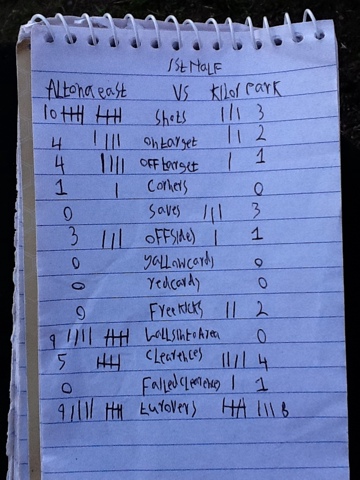 1st Half
Altona east VS Kilor Park
10 shots 3
4 on target 2
4 off target 1
1 corners 0
0 saves 3
3 offsides 1
0 yallowcards 0
0 redcards 0
0 Freekicks 2
9 ballsintoArea 0
5 clearences 4
0 Failedclearences 1
9 turovers 8